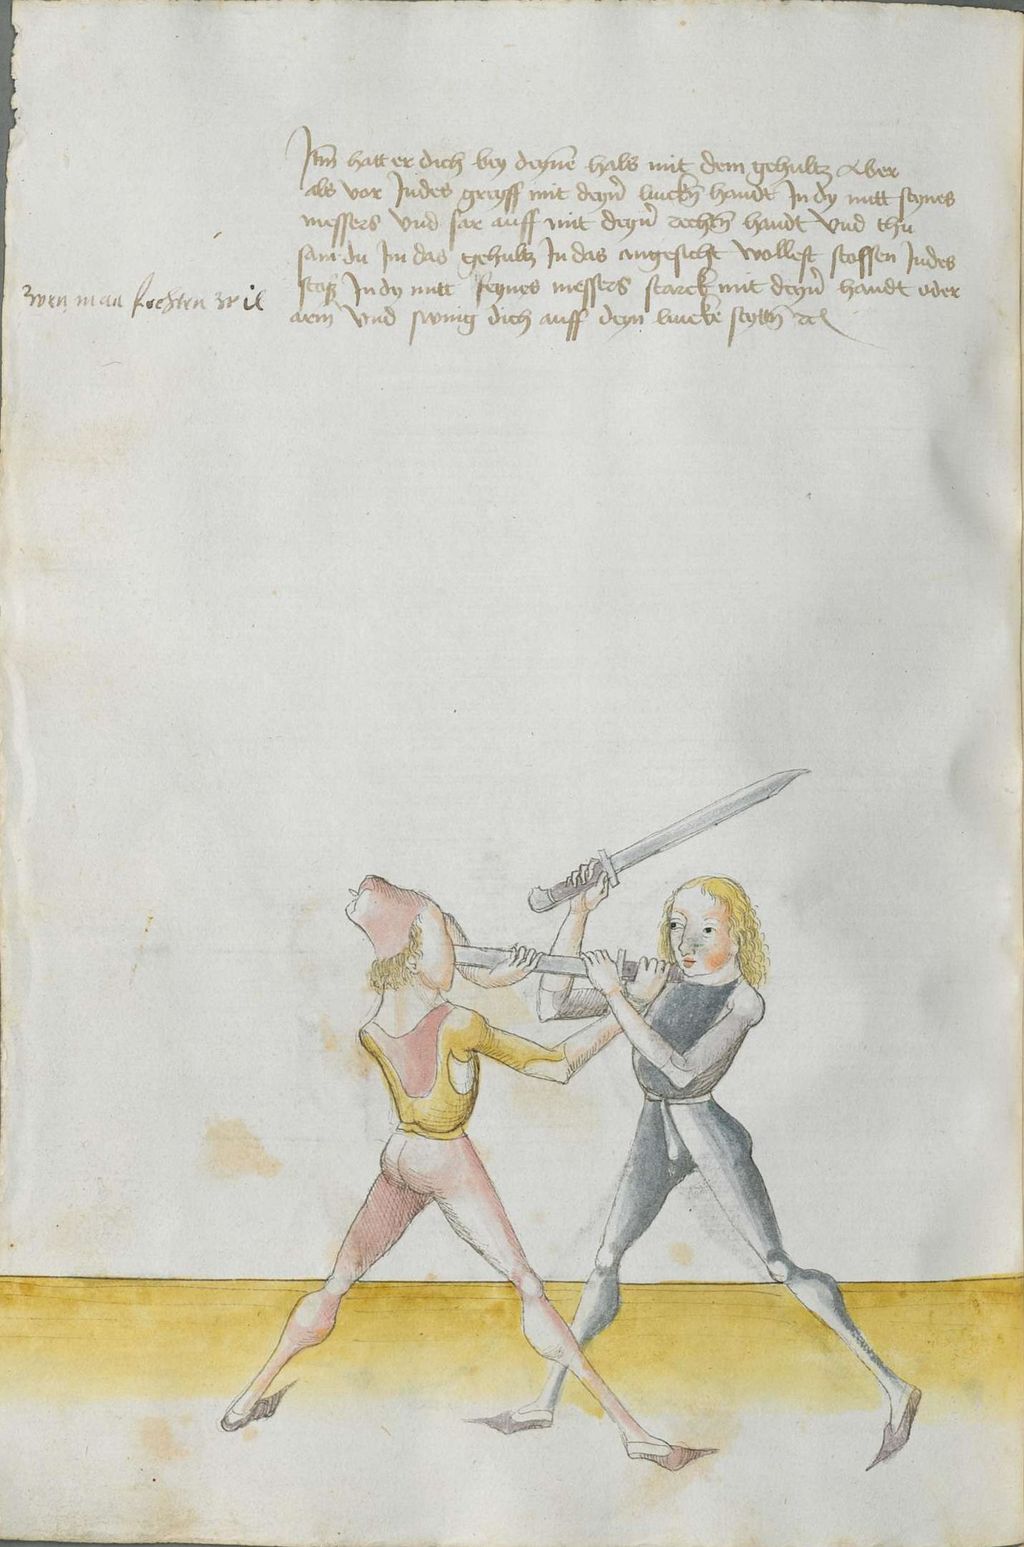 Itm hatt er dich bey deyne hals mit dem gehultz Aber
als vor Indes greyff mit deyn lincken handt In dy mitt seynes
messers vnd far auff mit deyn rechten handt vnd thu
sam du Im das gehultz In das angesicht wollest stossen Indes
stoß In dy mitt seynes messers starck mit deyn handt oder
arm vnd swing dich auff deyn lincke seytten
zwen man fechten